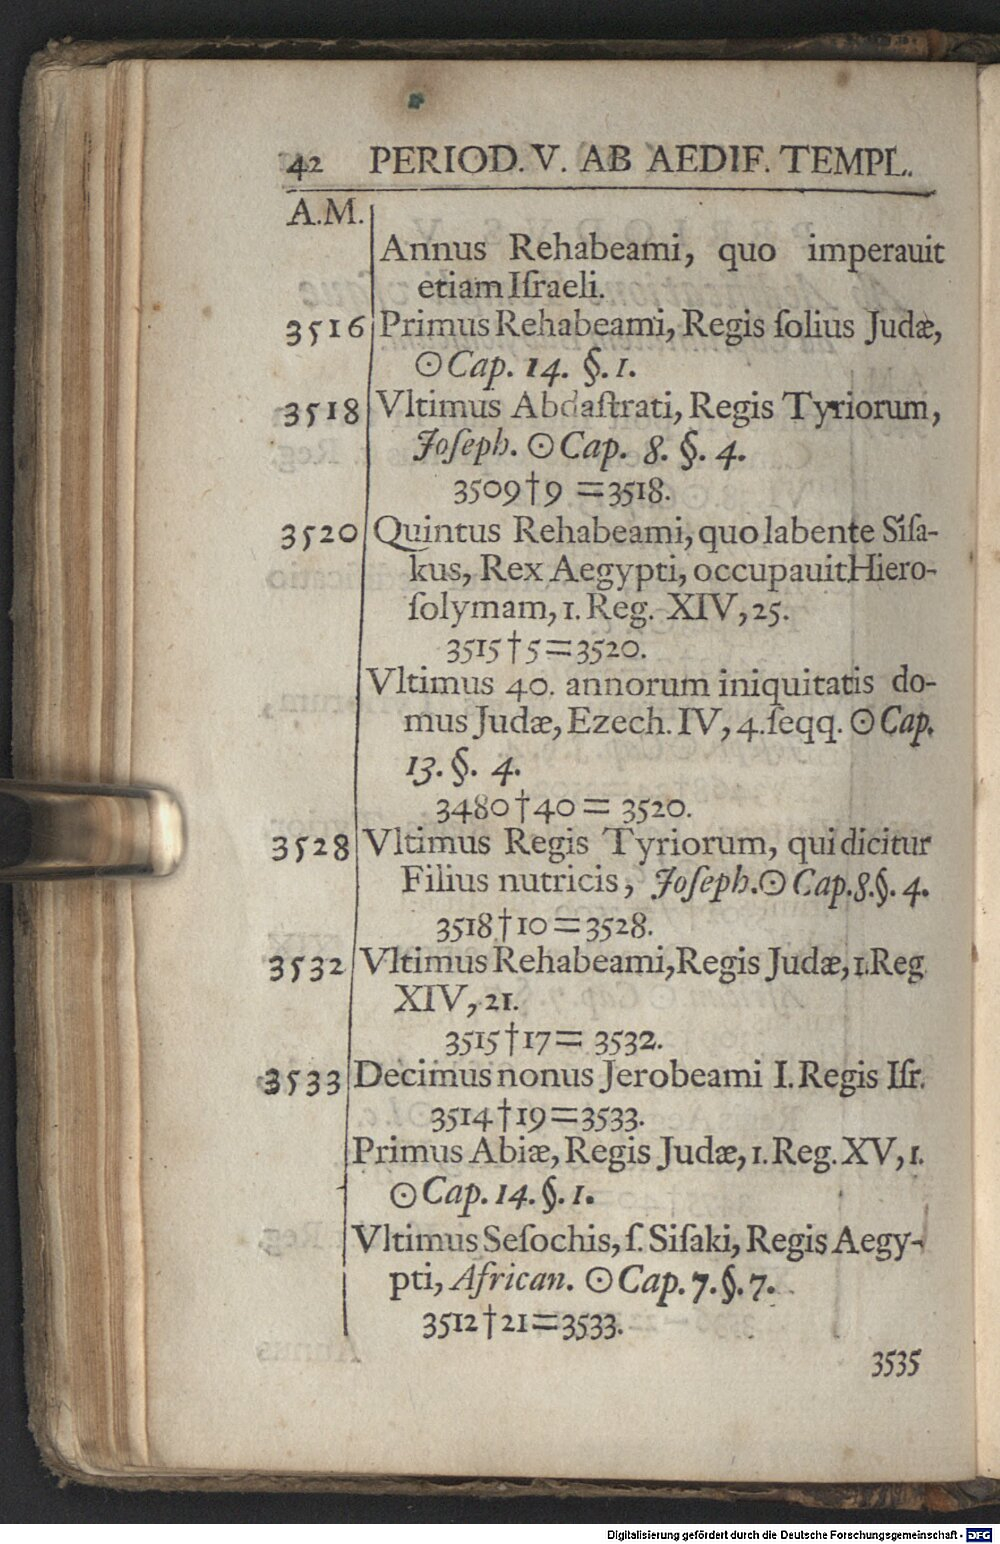 42 PERIOD. V. AB AEDIF. TEMPL.
A.M.
Annus Rehabeami, quo imperauit
etiam Iſraeli.
3516 Primus Rehabeami, Regis ſolius Judæ,
☉ Cap. 14. §. 1.
3518 Vltimus Abdaſtrati, Regis Tyriorum,
Joſeph. ☉ Cap. 8. §. 4.
3509 † 9 = 3518.
3520 Quintus Rehabeami, quo labente Siſa-
kus, Rex Aegypti, occupauit Hiero-
ſolymam, 1. Reg. XIV, 25.
3515 † 5 = 3520.
Vltimus 40. annorum iniquitatis do-
mus Judæ, Ezech. IV, 4. ſeqq. ☉ Cap.
13. §. 4.
3480 † 40 = 3520.
3528 Vltimus Regis Tyriorum, qui dicitur
Filius nutricis, Joſeph. ☉ Cap. 8. §. 4.
3518 † 10 = 3528.
3532 Vltimus Rehabeami, Regis Judæ, 1. Reg
XIV, 21.
3515 † 17 = 3532.
3533 Decimus nonus Jerobeami I. Regis Iſr.
3514 † 19 = 3533.
Primus Abiæ, Regis Judæ, 1. Reg. XV, 1.
☉ Cap. 14. §. 1.
Vltimus Seſochis, ſ. Siſaki, Regis Aegy-
pti, African. ☉ Cap. 7. §. 7.
3512 † 21 = 3533.
3535
Digitalisierung gefördert durch die Deutsche Forschungsgemeinschaft - DFG